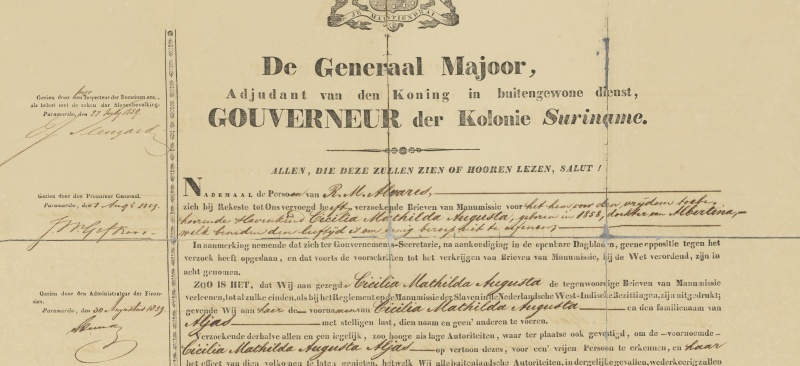 JE MAINTIENDRAI
De Generaal Majoor,
Adjudant van den Koning in buitengewone dienst,
GOUVERNEUR der Kolonie Suriname.
ALLEN, DIE DEZE ZULLEN ZIEN OF HOOREN LEZEN, SALUT!
Gezien door den Inspecteur der Domeinen enz.,
als belast met de zaken der Slavenbevolking.
Paramaribo, den 27 July 1859.
NADEMAAL de Persoon van R. M. Alvares,
zich bij Rekeste tot Ons vervoegd heeft, verzoekende Brieven van Manumissie voor het hem voor den vrijdom toebe-
hoorende Slavenkind Cecilia Mathilda Augusta, geboren in 1858, dochter van Albertina,
welk beneden den leeftijd is om eenig beroep uit te oefenen;
Gezien door den Procureur Generaal.
Paramaribo, den 1 Aug. 1859.
In aanmerking nemende dat zich ter Gouvernements-Secretarie, na aankondiging in de openbare Dagbladen, geene oppositie tegen het
verzoek heeft opgedaan, en dat voorts de voorschriften tot het verkrijgen van Brieven van Manumissie, bij de Wet verordend, zijn in
acht genomen.
ZOO IS HET, dat Wij aan gezegde Cecilia Mathilda Augusta de tegenwoordige Brieven van Manumissie
verleenen, tot al zulke einden, als bij het Reglement op de Manumissie der Slaven in de Nederlandsche West-Indische Bezittingen, zijn uitgedrukt;
gevende Wij haar de voornamen Cecilia Mathilda Augusta en den familienaam van
Aljas met stelligen last, dien naam en geen' anderen te voeren.
Gezien door den Administrateur der Finan-
cien.
Paramaribo, den 30 Augustus 1859.
Verzoekende derhalve allen en een iegelijk, zoo hooge als lage Autoriteiten, waar ter plaatse ook gevestigd, om de voornoemde
Cecilia Mathilda Augusta Aljas op vertoon dezes, voor een' vrijen Persoon te erkennen, en haar
het effect van dien volkomen te laten genieten, hetwelk Wij alle buitenlandsche Autoriteiten, in dergelijke gevallen, wederkeerig zullen